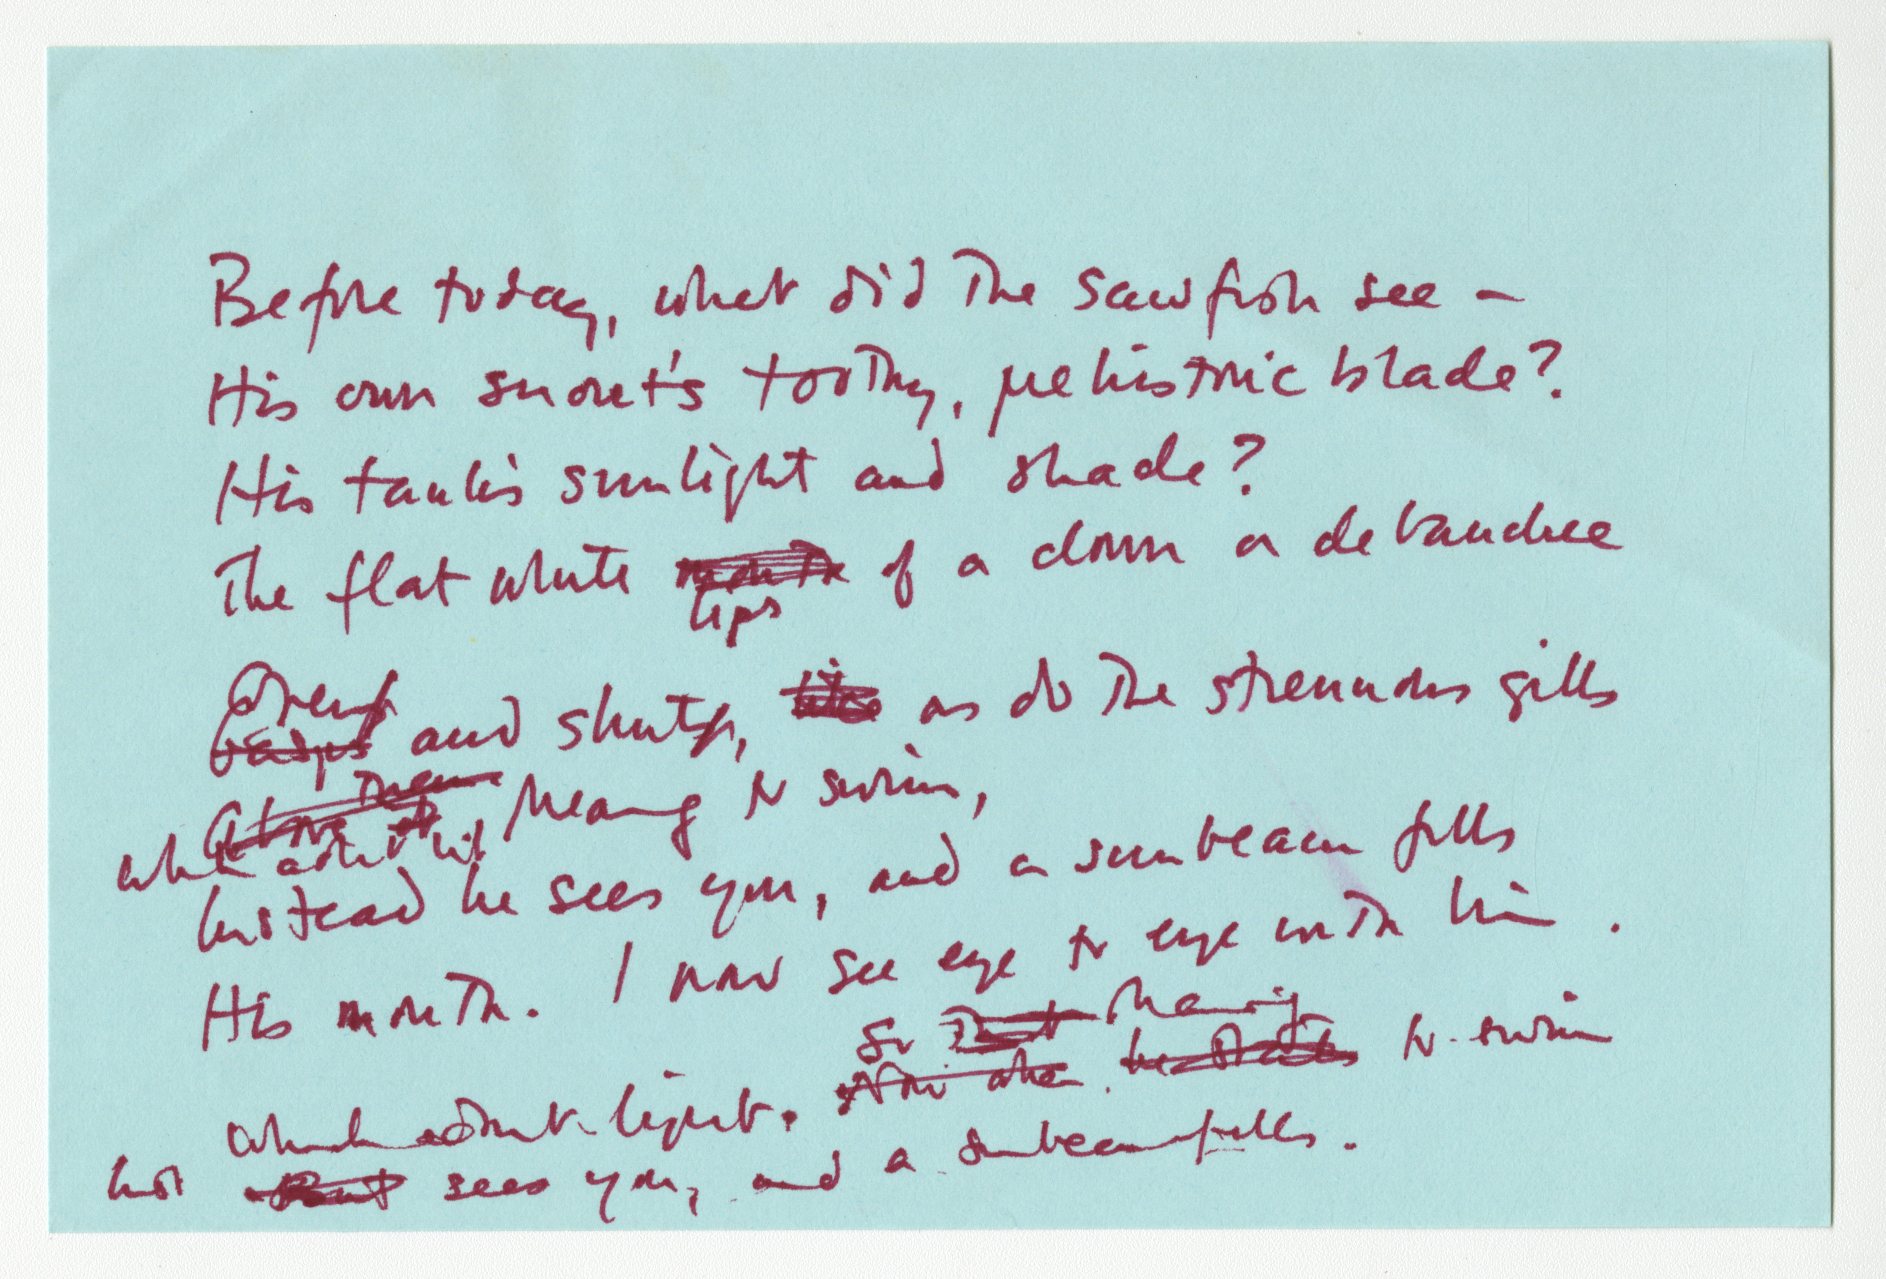 Before today, what did the sawfish see –
His own snout's toothy, prehistoric blade?
His tank's sunlight and shade?
The flat white mouth of a clown or debauchee
lips
Opens
Gasps and shuts, like as do the strenuous gills
Above them meaning to swim,
which admit light
Instead he sees you, and a sunbeam fills
His mouth. I now see eye to eye with him.
So That meaning
Now when to swim
which admit light.
hot But sees you, and a sunbeam fills.